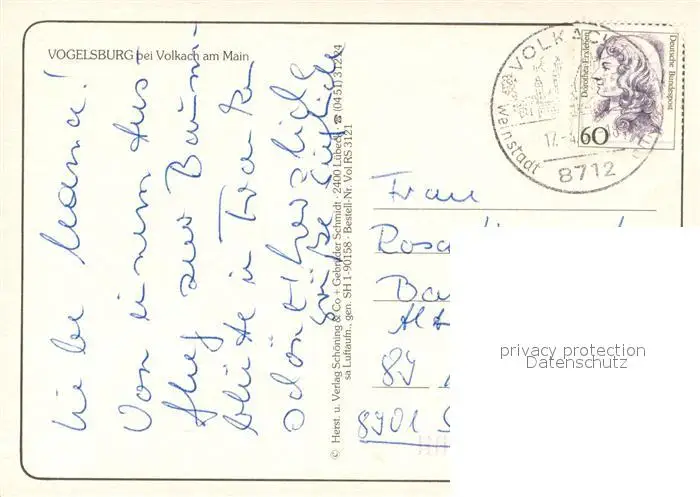 VOGELSBURG bei Volkach am Main
Liebe Mama!
Von einem Aus-
flug zur Baum-
blüte in Franken
schönste herzliche
Grüße
© Herst. u. Verlag Schöning & Co + Gebrüder Schmidt · 2400 Lübeck · ☎ (0451) 31224
sa Luftaufn., gen. SH 1-90158 · Bestell-Nr. Vol RS 3121
VOLKACH
Weinstadt
17.
8712
Dorothea Erxleben
Deutsche Bundespost
60
Frau
Rosa
Ba
Alt
8701
privacy protection
Datenschutz